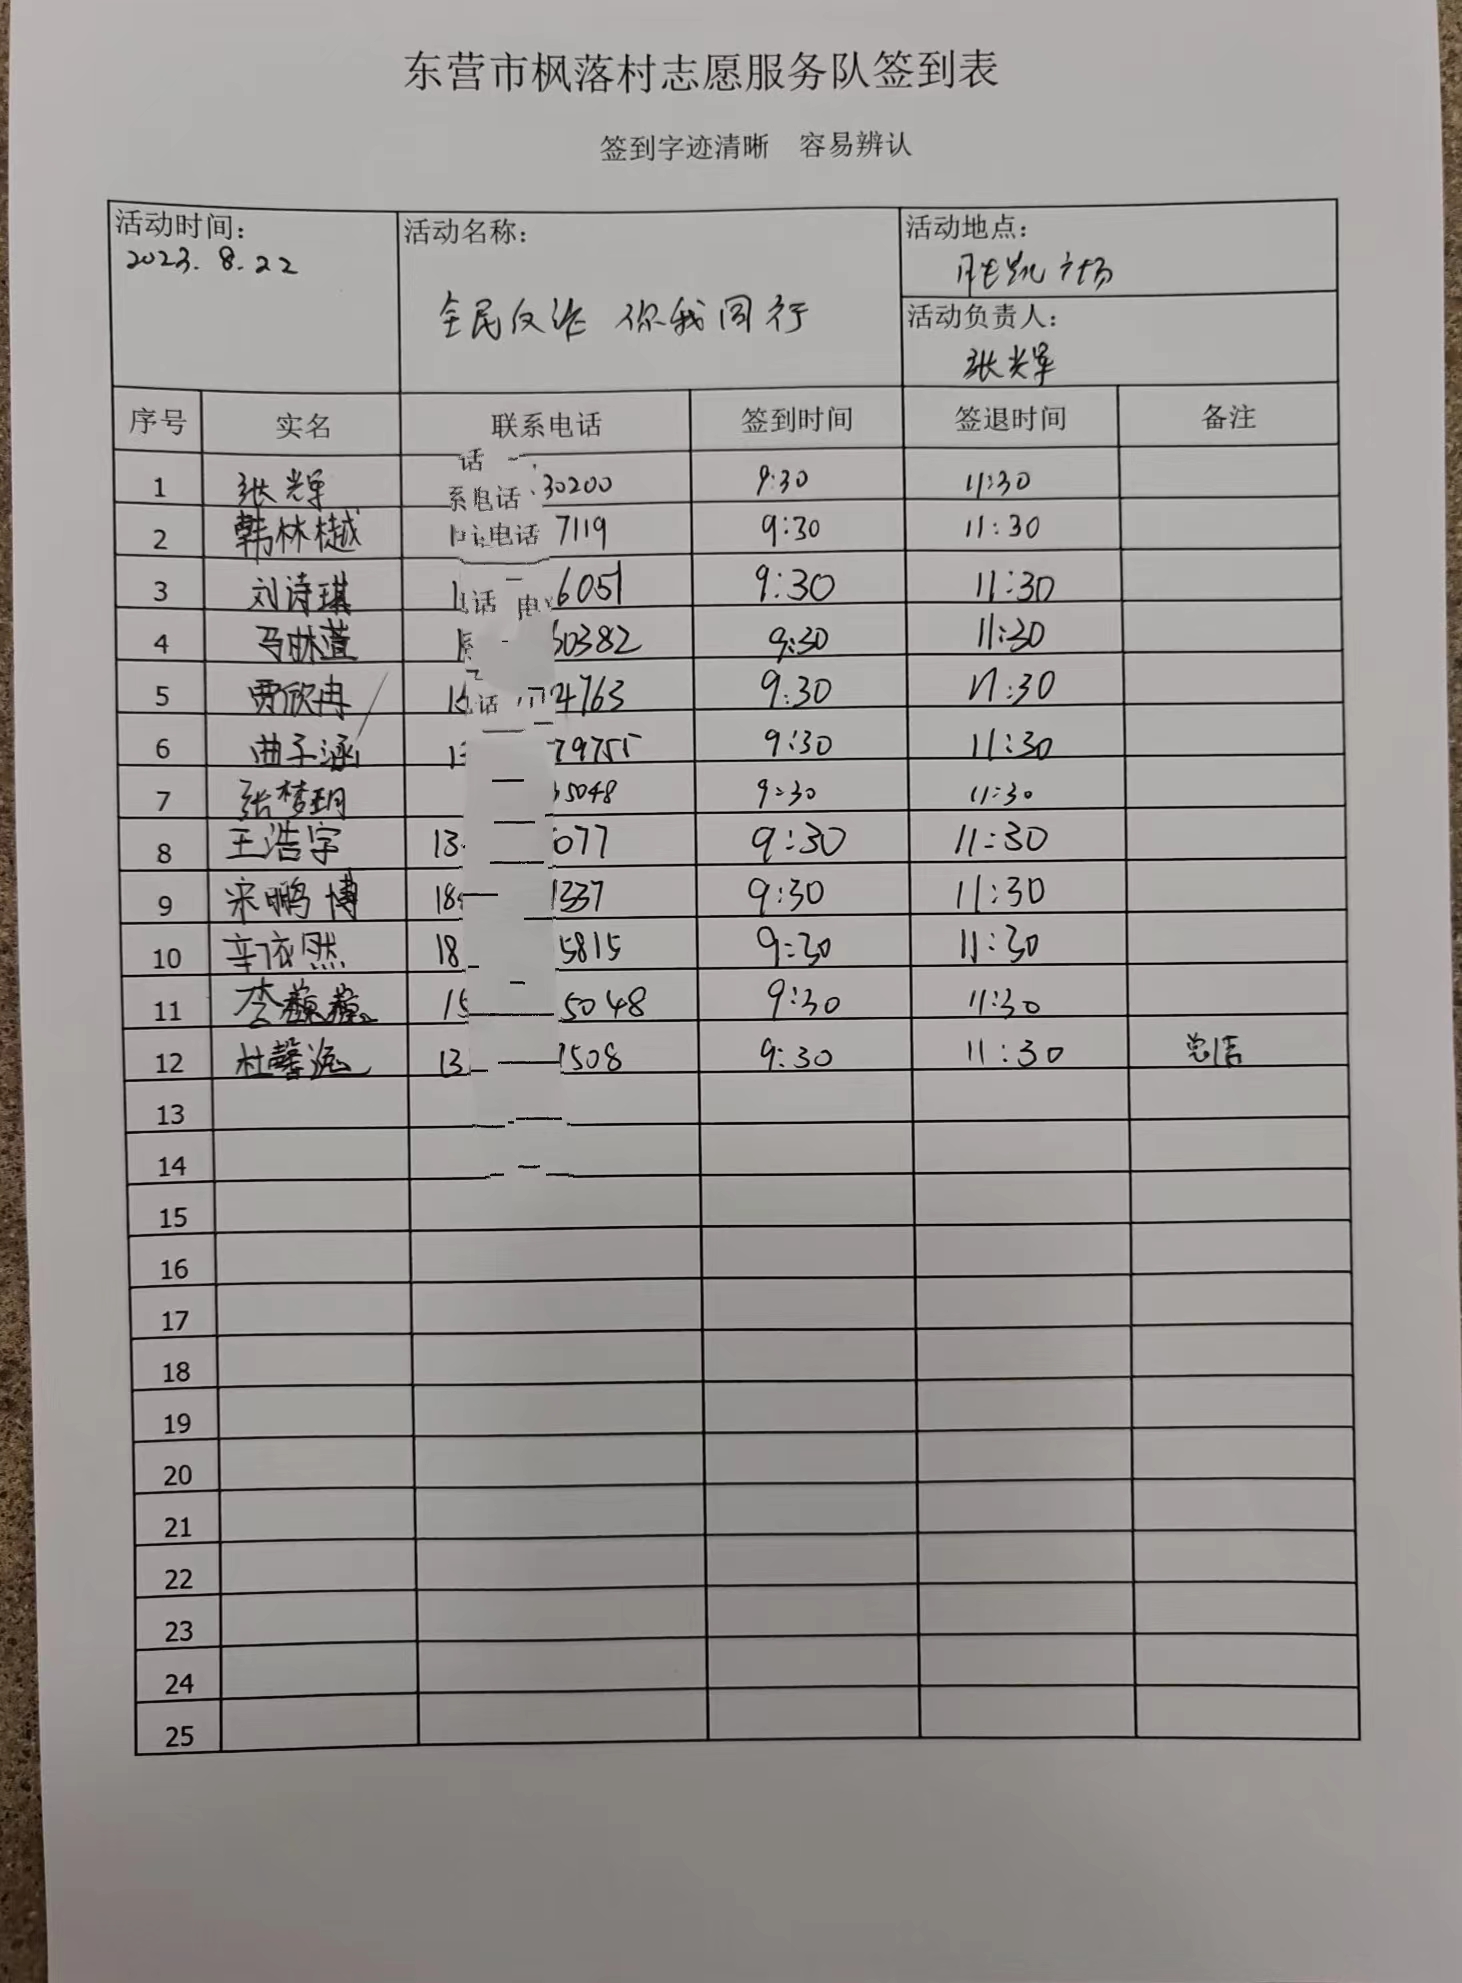 东营市枫落村志愿服务队签到表
签到字迹清晰 容易辨认
活动时间: 活动名称: 活动地点:
2023.8.22
胜凯广场
全民反诈 你我同行
活动负责人:
张光军
序号 实名 联系电话 签到时间 签退时间 备注
话
系电话
电话
话 电
话
1 张辉 30200 9:30 11:30
2 韩林樾 7119 9:30 11:30
3 刘诗琪 1 6051 9:30 11:30
4 马林萱 1 60382 9:30 11:30
5 贾欣冉 4763 9:30 11:30
6 曲子涵 13 79755 9:30 11:30
7 张梦玥 5048 9:30 11:30
8 王浩宇 13 6077 9:30 11:30
9 宋鹏博 18 1337 9:30 11:30
10 辛依然 18 5815 9:30 11:30
11 李 15 5048 9:30 11:30
12 杜馨 13 1508 9:30 11:30 总结
13
14
15
16
17
18
19
20
21
22
23
24
25